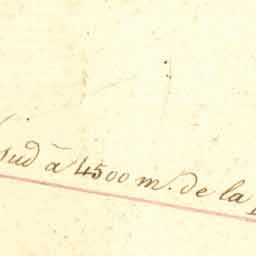 sud à 4500 m. de la